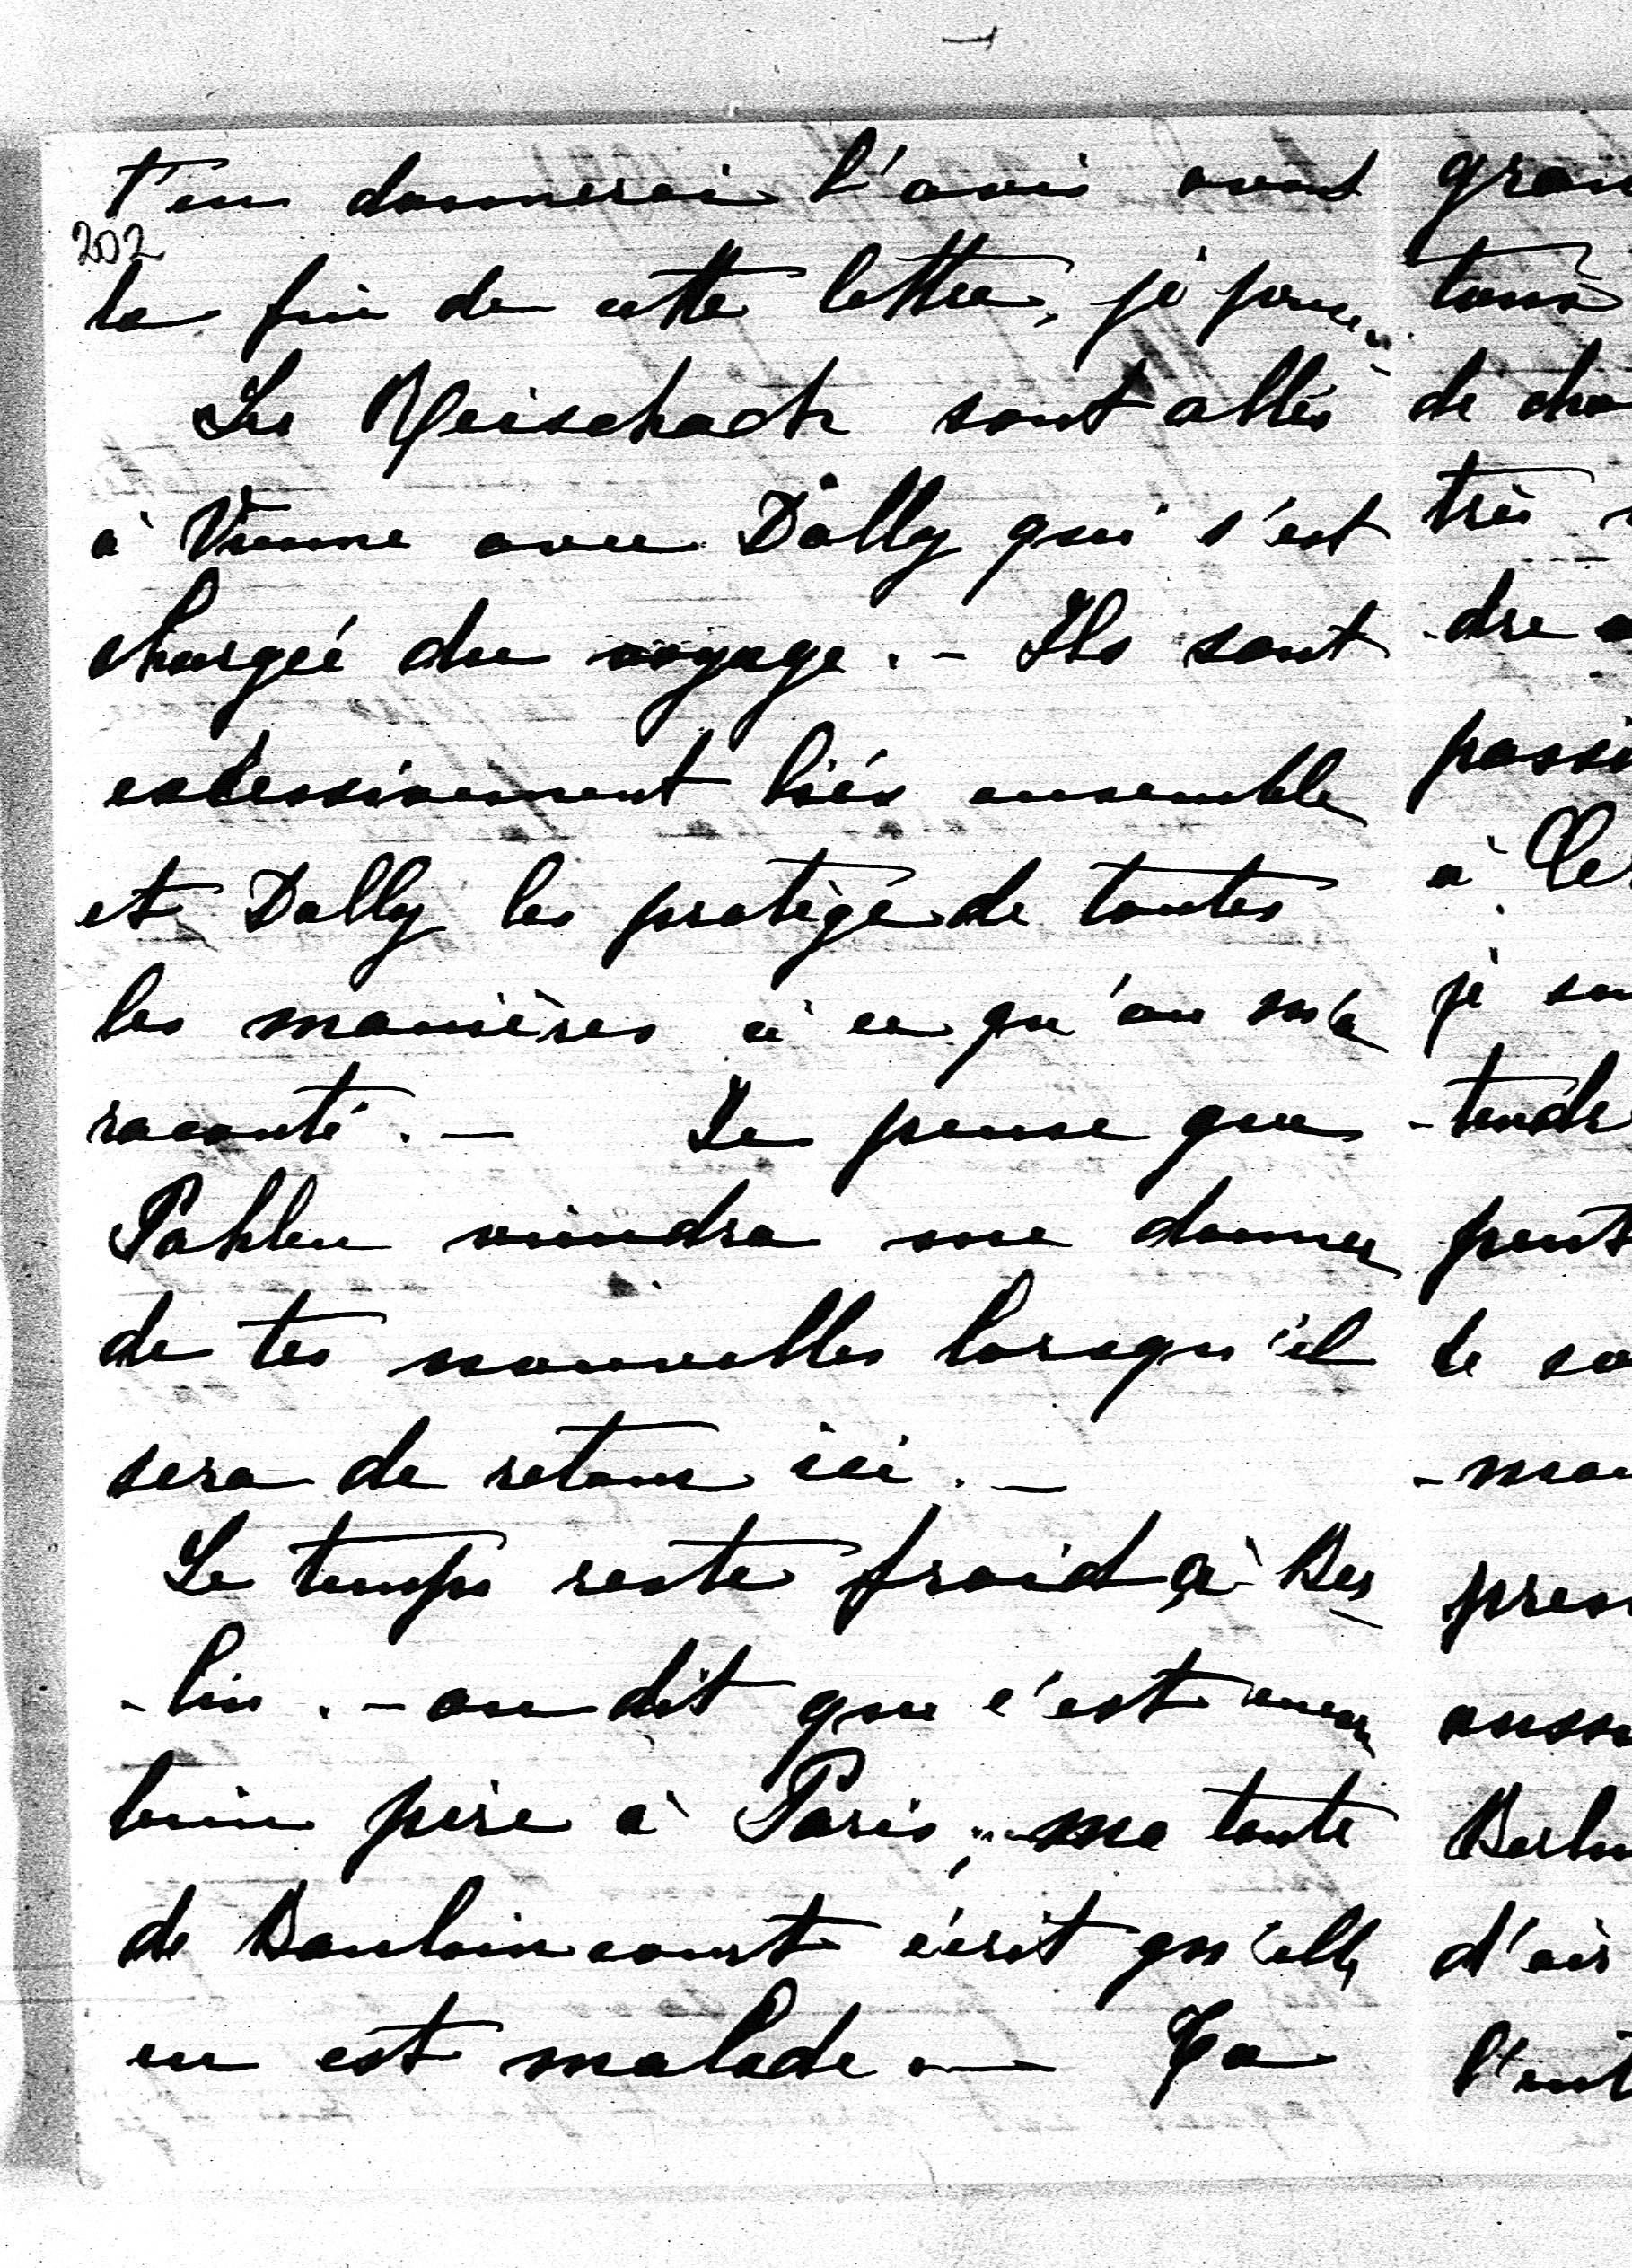 t'en donnerai l'avis avant
202
la fin de cette lettre, je pense.
Les Reischach sont allés
à Vienne avec Dolly qui s'est
chargée du voyage. - Ils sont
excessivement liés ensemble
et Dolly les protège de toutes
les manières à ce qu'on m'a
raconté. — Je pense que
Pahlen viendra me donner
de tes nouvelles lorsqu'il
sera de retour ici. —
Le temps reste froid à Ber
-lin. - on dit que c'est encore
bien pire à Paris, ma tante
de Bauloincourt écrit qu'elle
en est malade — Ta
gran
tous
de cha
très
-dre
passi
à
je
-tends
peut
te
-mau
pres
auss
Berlin
d'air
l'ent